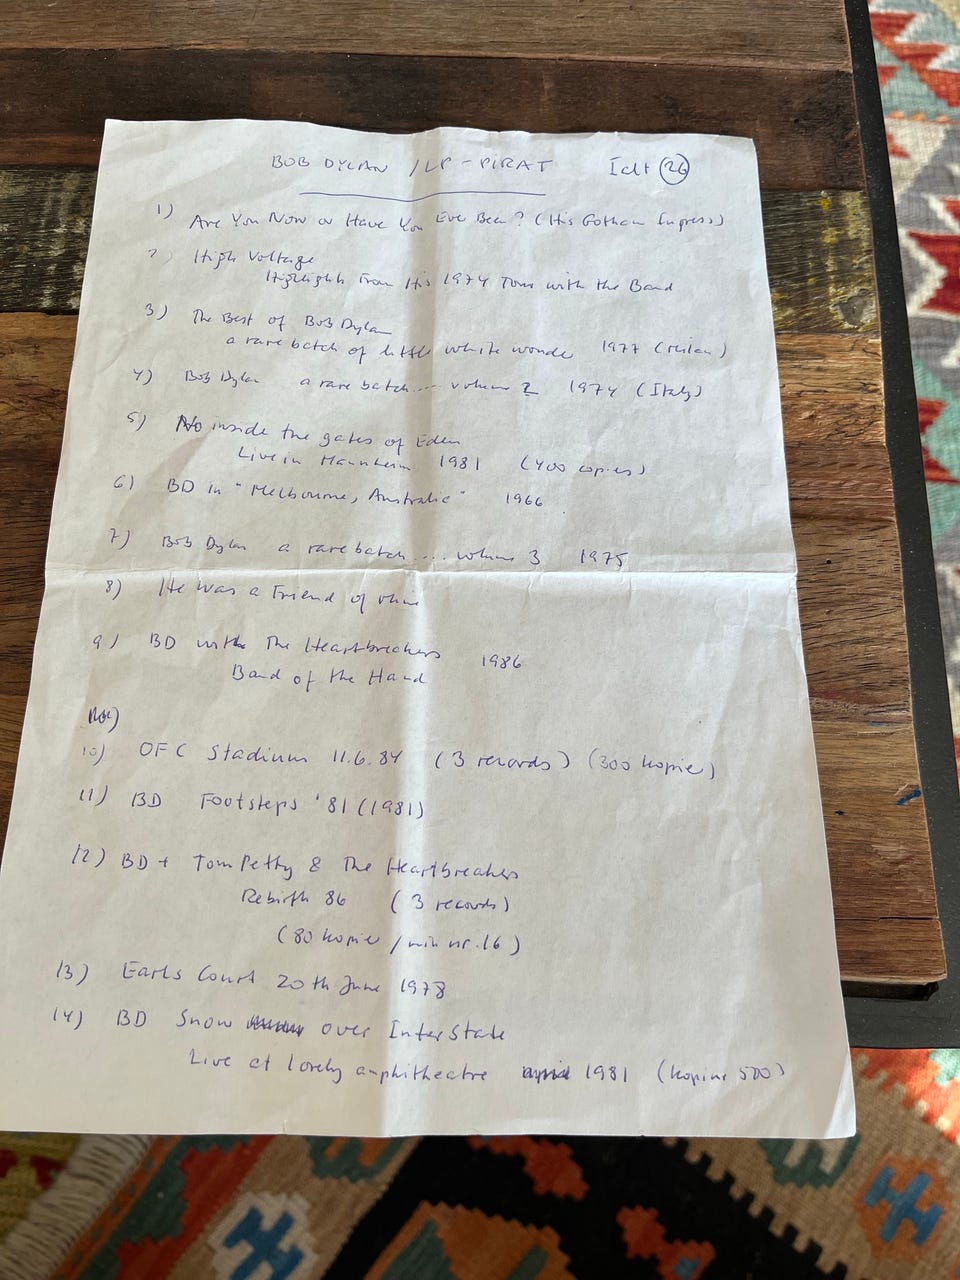 BOB DYLAN / LP - PIRAT Ialt 26
1) Are You Now or Have You Ever Been? (His Gotham Ingress)
2) High Voltage
Highlights From His 1974 Tour with the Band
3) The Best of Bob Dylan
a rare batch of little white wonder 1977 (
4) Bob Dylan a rare batch .... volume 2 1974 (Italy)
5) No inside the gates of Eden
Live in Mannheim 1981 (400 copies)
6) BD in "Melbourne, Australia" 1966
7) Bob Dylan a rare batch .... volume 3 1975
8) He was a Friend of mine
9) BD with The Heartbreakers 1986
Band of the Hand
10) OFC Stadium 11.6.84 (3 records) (300 kopier)
11) BD Footsteps '81 (1981)
12) BD + Tom Petty & The Heartbreakers
Rebirth 86 (3 records)
(80 kopier / min nr. 16)
13) Earls Court 20th June 1978
14) BD Snow over Interstate
Live at lovely amphitheatre 1981 (kopier 500)